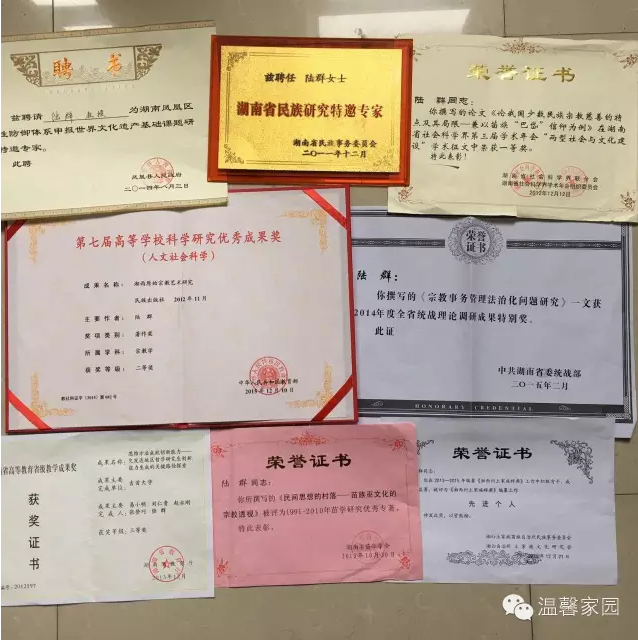 聘书
兹聘请 陆群 教授 为湖南凤凰区
性防御体系申报世界文化遗产基础课题研
特邀专家。
此聘
凤凰县人民政府
二〇一四年八月三日
兹聘任 陆群女士
湖南省民族研究特邀专家
湖南省民族事务委员会
二〇一一年十二月
荣誉证书
陆 群同志:
你撰写的论文《论我国少数民族宗教慈善的特
点及其局限—兼以苗族“巴岱”信仰为例》在湖南
省社会科学界第三届学术年会“两型社会与文化建
设”学术征文中荣获一等奖。
特此表彰!
湖南省社会科学界联合会
湖南省社会科学界学术年会组织委员会
2012年12月12日
第七届高等学校科学研究优秀成果奖
(人文社会科学)
成果名称: 湘西原始宗教艺术研究
民族出版社 2012年11月
主要作者: 陆 群
奖项类别: 著作奖
所属学科: 宗教学
获奖等级: 二等奖
中华人民共和国教育部
2015年12月10日
教社科证字(2015)第082号
荣誉
证书
陆 群:
你撰写的《宗教事务管理法治化问题研究》一文获
2014年度全省统战理论调研成果特别奖。
此证
中共湖南省委统战部
二〇一五年二月
HONORARY CREDENTIAL
省高等教育省级教学成果奖
获奖证书
成果名称:
成果主要
完成单位: 吉首大学
成果主要
完成人:
获奖等级: 三等奖
荣誉证书
陆 群同志:
你所撰写的《民间思想的村落——苗族巫文化的
宗教透视》被评为1991-2010年苗学研究优秀专著,
特此表彰。
湖南省苗学学会
荣誉证书
先进个人
温馨家园